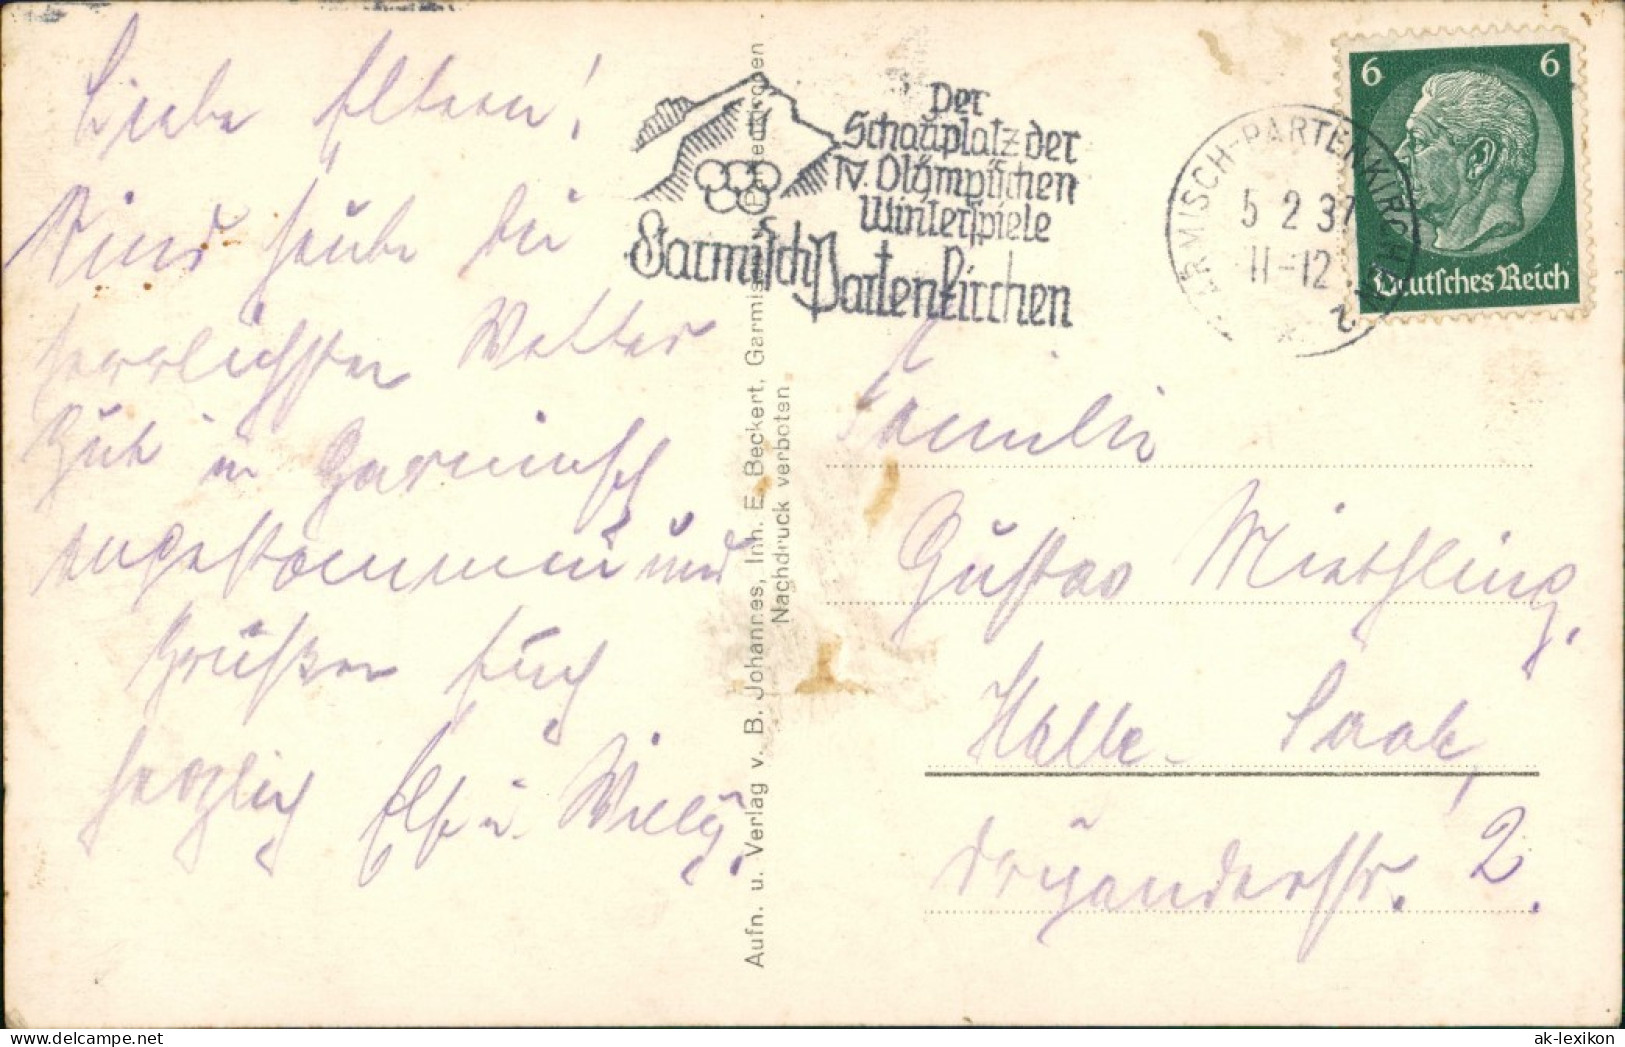 Liebe Eltern!
Sind heute bei
herrlichsten Wetter
Gut in Garmisch
angekommen und
Grüßen Euch
herzlich Else u. Willy.
Der
Schauplatz der
IV. Olympischen
Winterspiele
Garmisch Partenkirchen
GARMISCH-PARTENKIRCHEN 2
5 2 37
11-12
6 6
Deutsches Reich
Aufn. u. Verlag v. B. Johannes, Inh. E. Beckert, Garmisch-Partenkirchen
Nachdruck verboten
Familie
Gustav Miethling,
Halle-Saale,
Dryanderstr. 2.
ak-lexikon